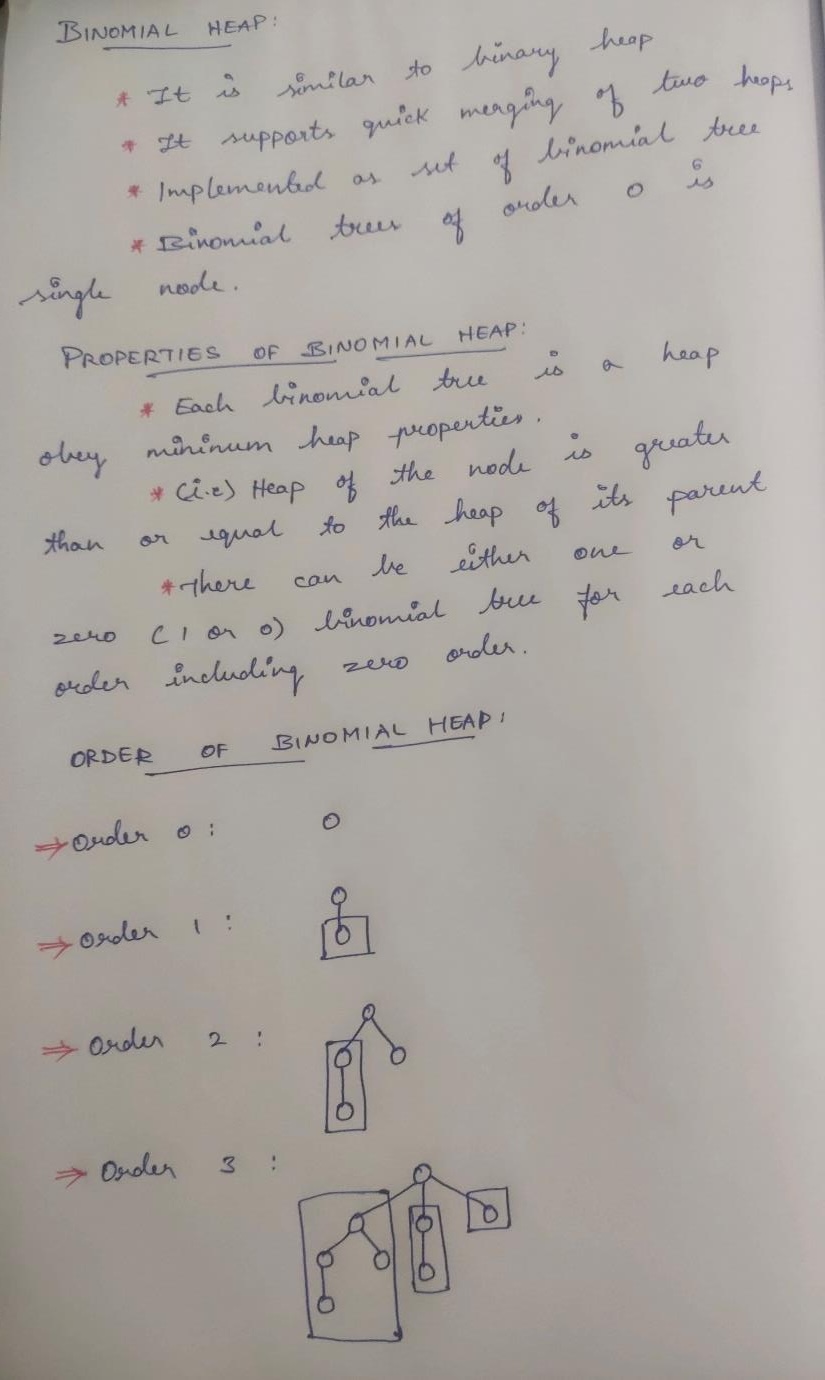 BINOMIAL HEAP:
* It is similar to binary heap
* It supports quick merging of two heaps
* Implemented as set of binomial tree
* Binomial trees of order 0 is
single node.
PROPERTIES OF BINOMIAL HEAP:
* Each binomial tree is a heap
obey mininum heap properties.
* (i.e) Heap of the node is greater
than or equal to the heap of its parent
* There can be either one or
zero (1 or 0) binomial tree for each
order including zero order.
ORDER OF BINOMIAL HEAP:
⇒ Order 0 :
⇒ Order 1 :
⇒ Order 2 :
⇒ Order 3 :